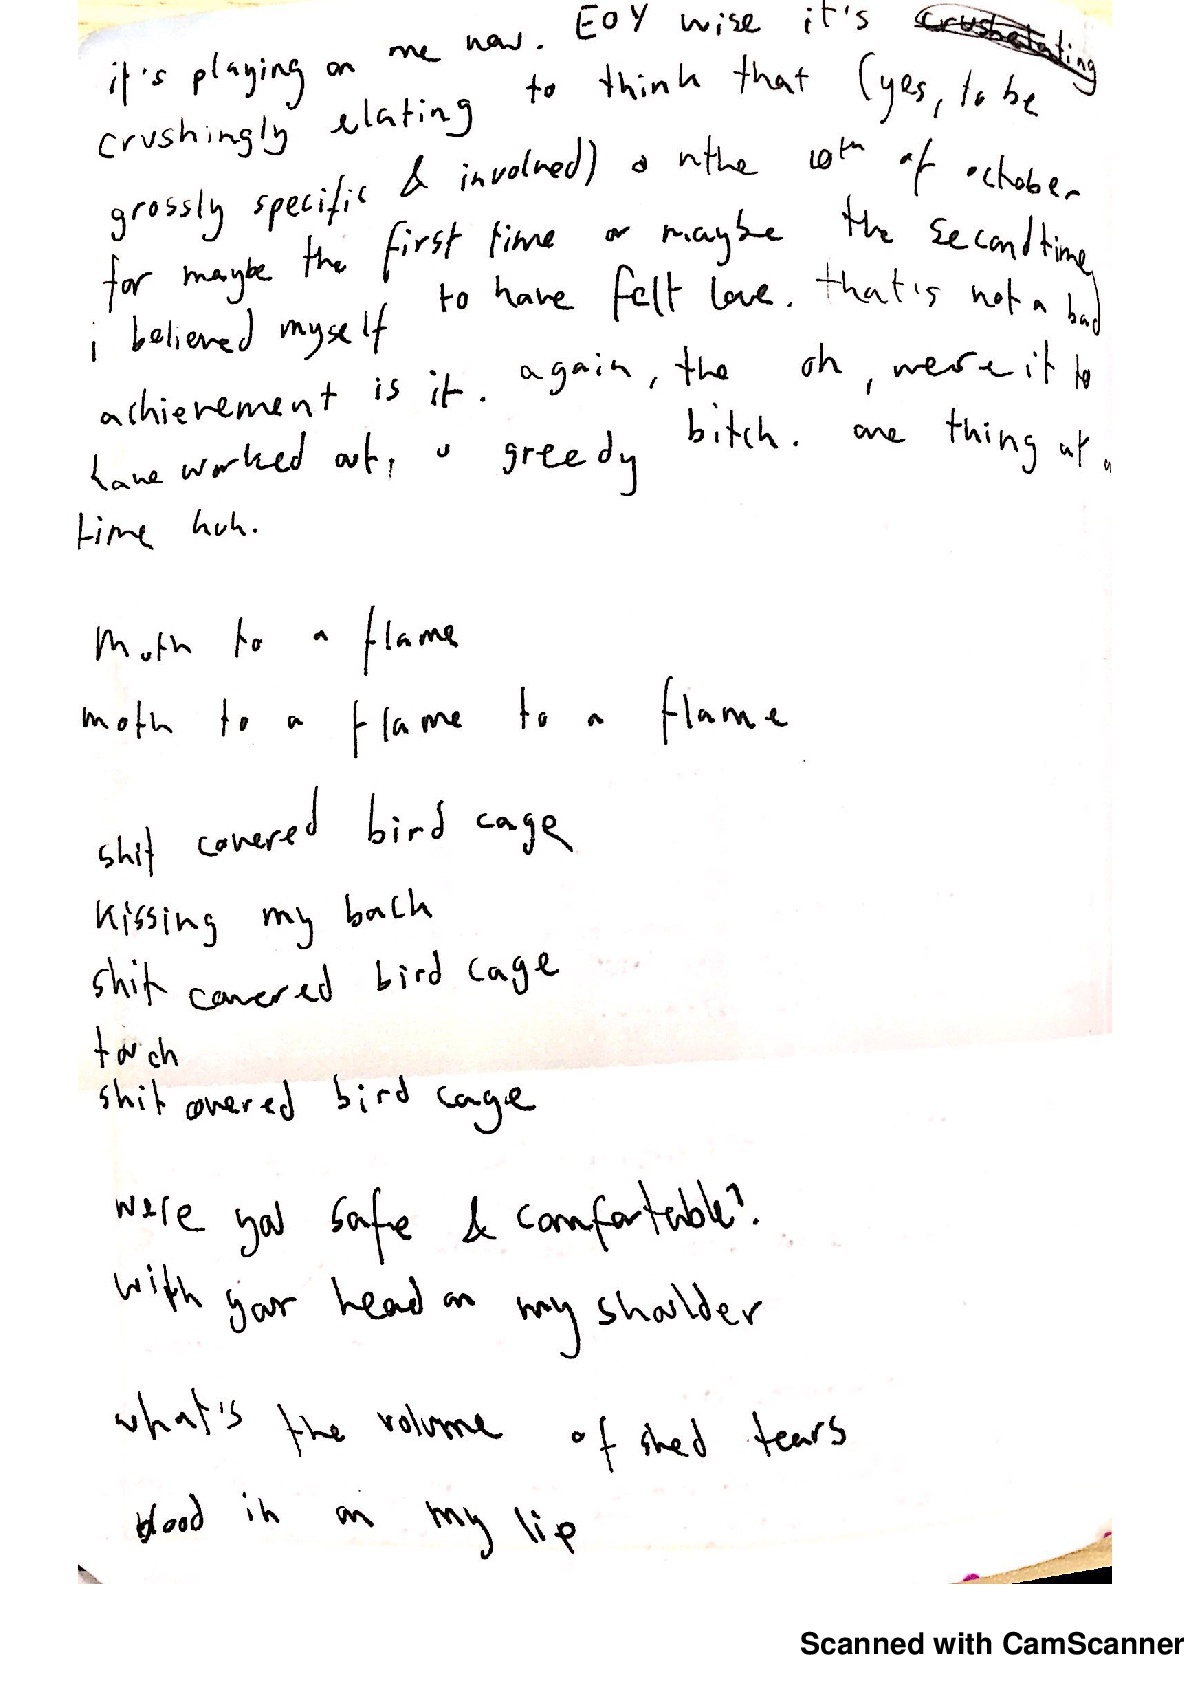 it's playing on me now. EOY wise it's
crushingly elating to think that (yes, to be
grossly specific & involved) on the 10th of october
for maybe the first time or maybe the second time
i believed myself to have felt love. that's not a bad
achievement is it. again, the oh, were it to
have worked out, u greedy bitch. one thing at a
time huh.
moth to a flame
moth to a flame to a flame
shit covered bird cage
kissing my back
shit covered bird cage
torch
shit covered bird cage
were you safe & comfortable?
with your head on my shoulder
what's the volume of shed tears
blood in on my lip
Scanned with CamScanner